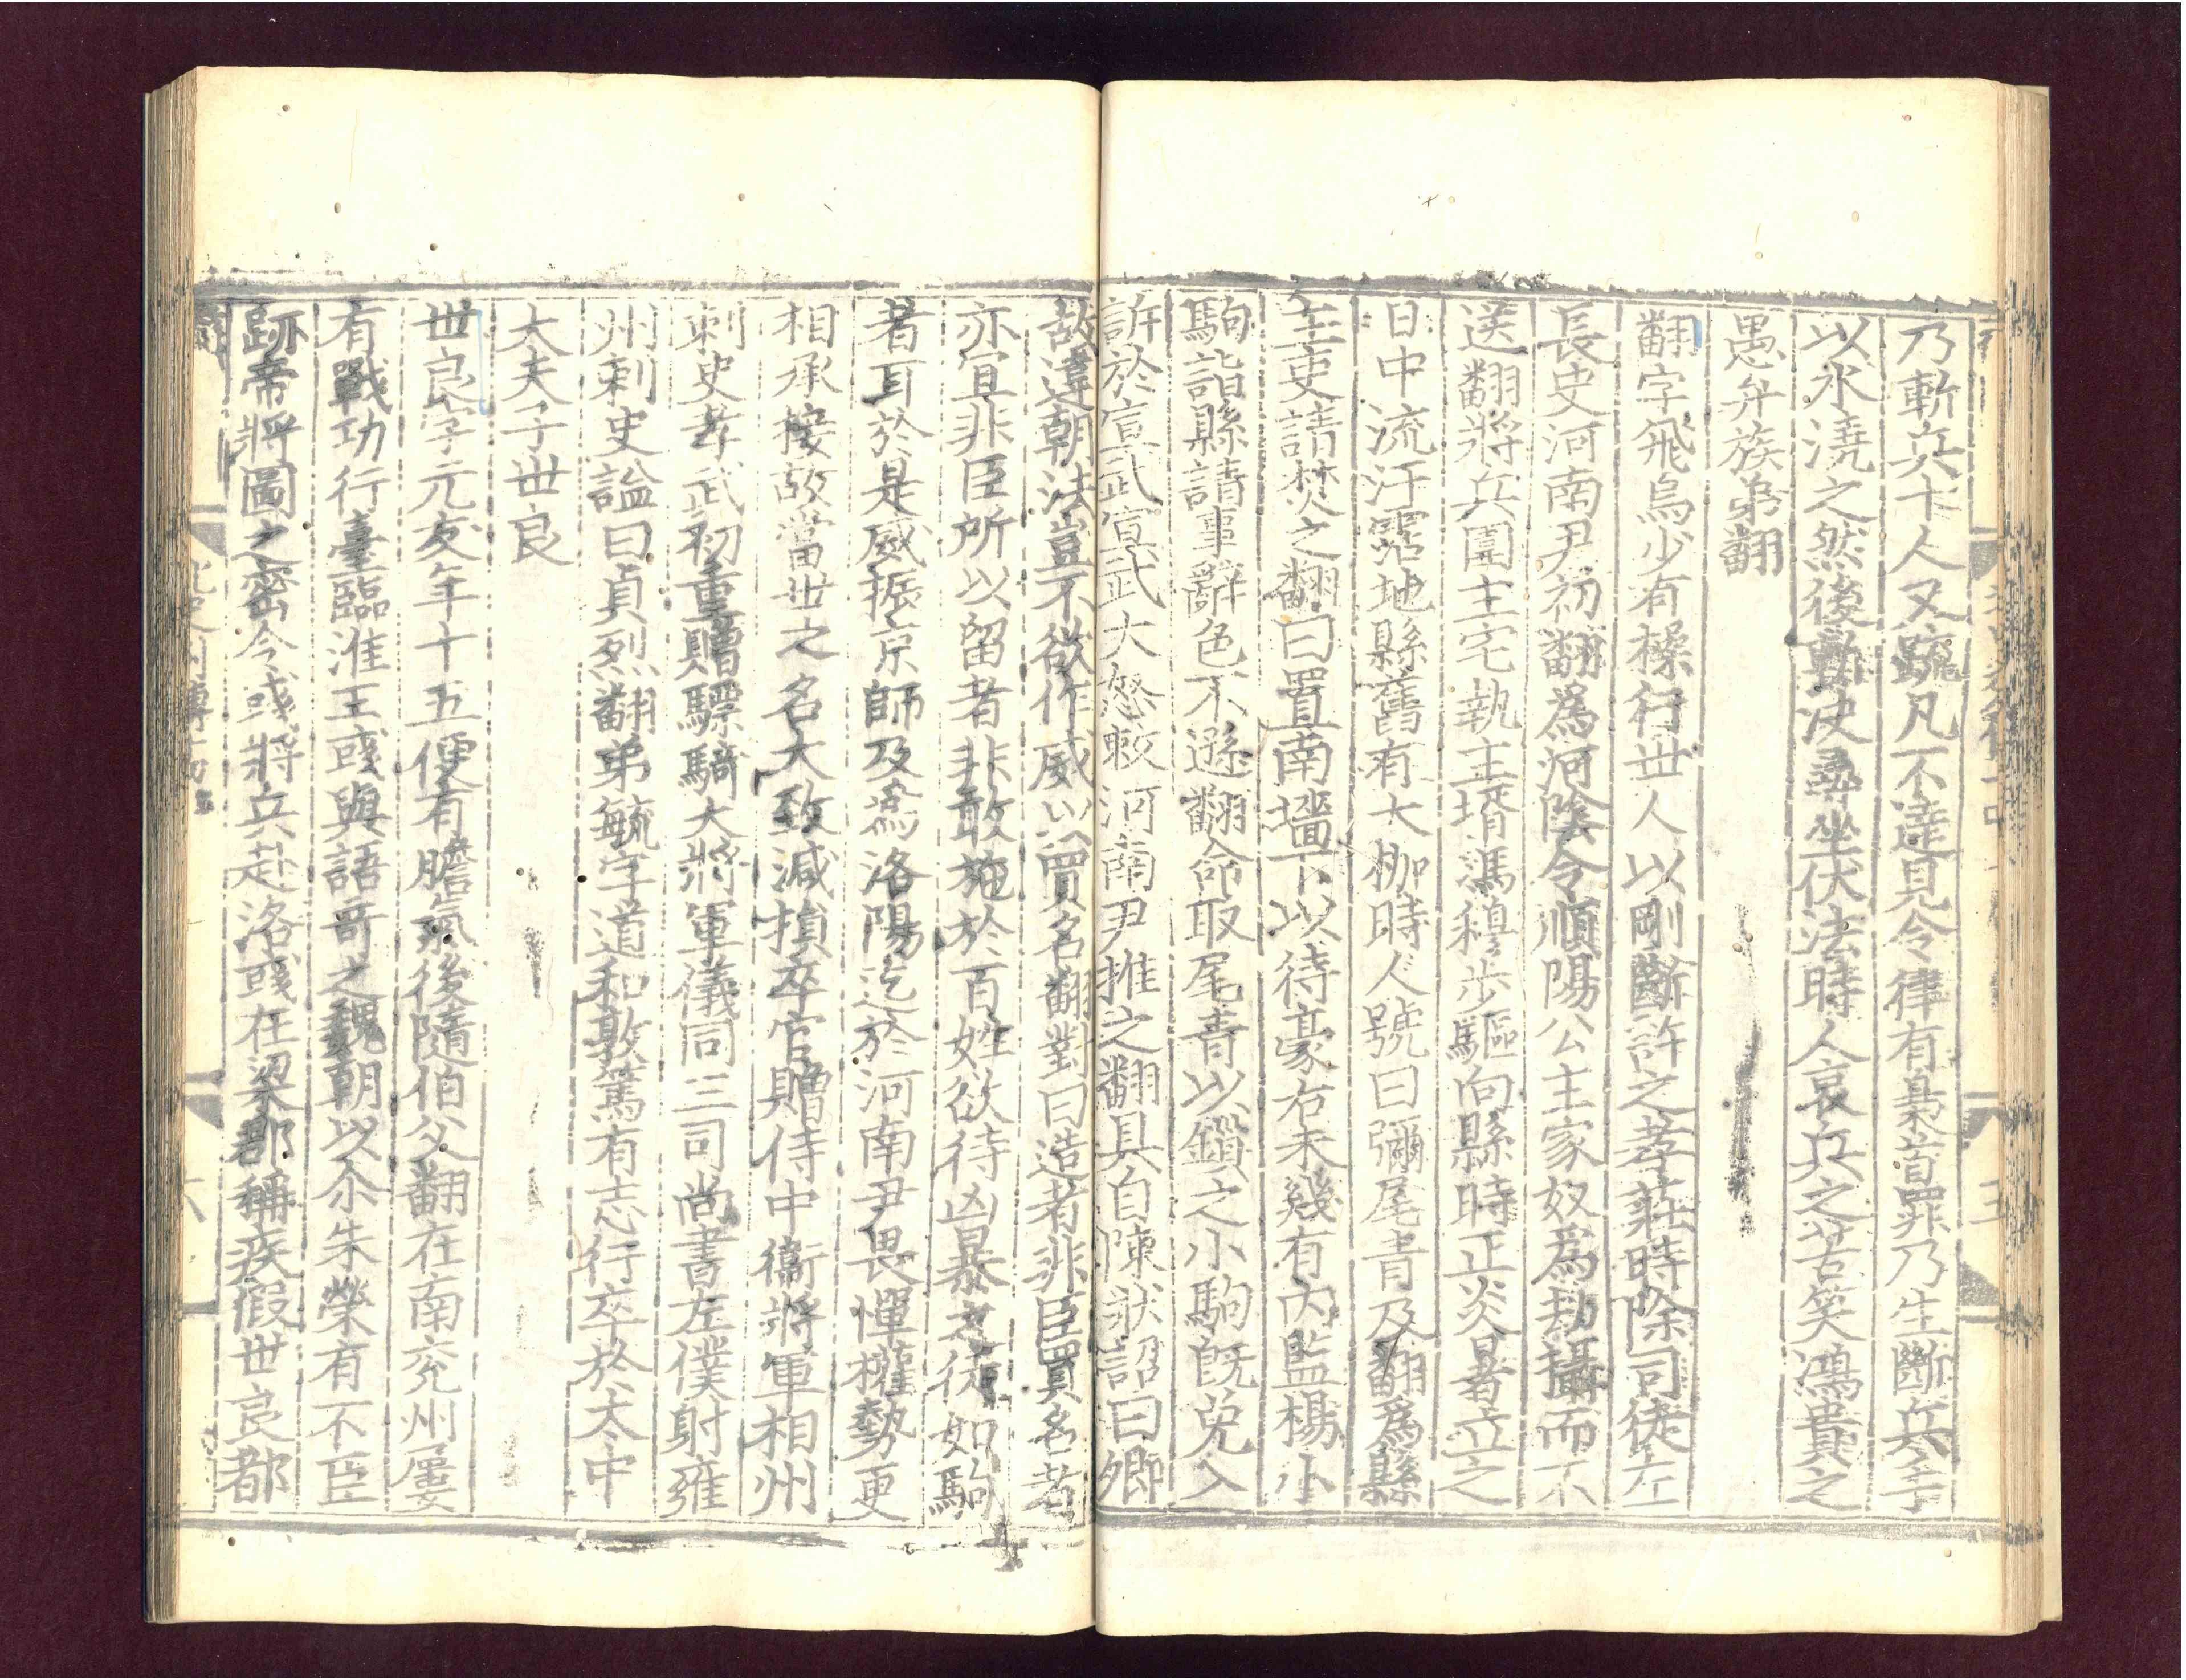 乃斬兵十人又疏凡不達見令律有梟首罪乃生斷兵手
以水澆之然後斬決尋坐伏法時人哀兵之苦笑鴻貴之
愚弁族弟翻
翻字飛烏少有操行世人以剛斷許之孝莊時除司徒左
長史河南尹初翻爲河陰令順陽公主家奴爲劫攝而不
送翻將兵圍主宅執主壻馮穆步驅向縣時正炎暑立之
日中流汗霑地縣舊有大枷時人號曰彌尾青及翻爲縣
主吏請焚之翻曰置南墻下以待豪右未幾有內監楊小
駒詣縣請事辭色不遜翻命取尾青以鎖之小駒旣免入
訴於宣武宣武大怒敕河南尹推之翻具自陳狀詔曰卿
故違朝法豈不欲作威以買名翻對曰造者非臣買名者
亦宜非臣所以留者非敢施於百姓欲待凶暴之徒如駒
者耳於是威振京師及爲洛陽迄於河南尹畏憚權勢更
相承接故當世之名大致減損卒官贈侍中衞將軍相州
刺史孝武初重贈驃騎大將軍儀同三司尚書左僕射雍
州刺史謚曰貞烈翻弟毓字道和敦篤有志行卒於太中
大夫子世良
世良字元友年十五便有膽氣後隨伯父翻在南兖州屢
有戰功行臺臨淮王彧與語哥之魏朝以尒朱榮有不臣
跡帝將圖之密令彧將兵赴洛彧在梁郡稱疾假世良都